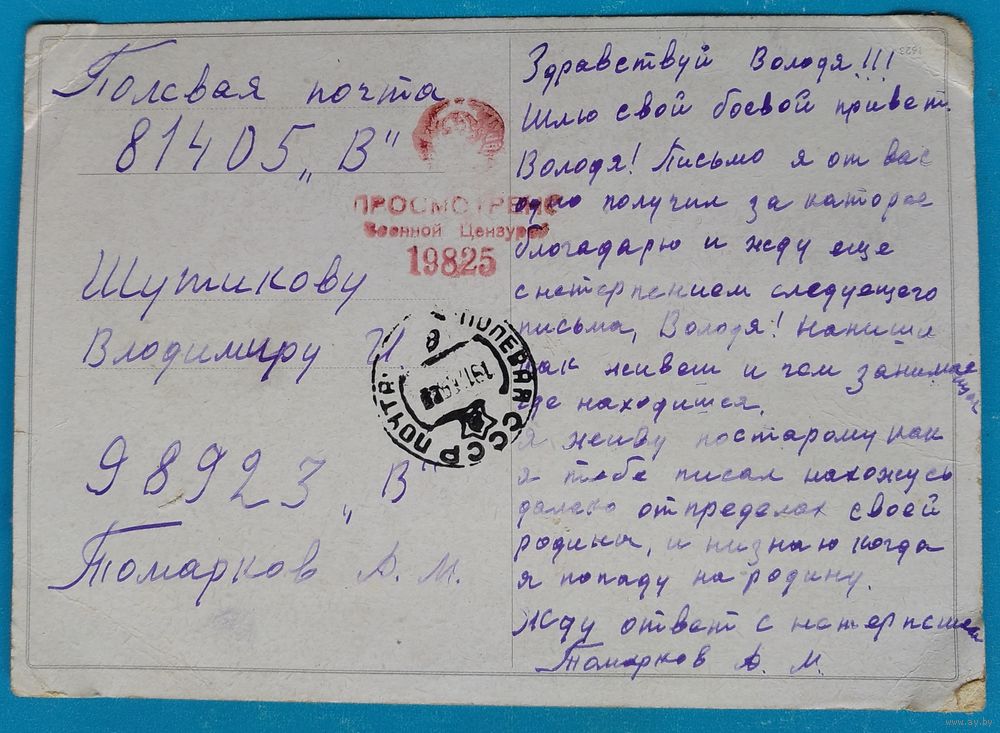 Полевая почта
81405 „В"
ПРОСМОТРЕНО
Военной Цензурой
19825
Шутикову
Владимиру И
ПОЛЕВАЯ ПОЧТА СССР
98923 „В"
Томарков А. М.
1623
Здравствуй Володя!!!
Шлю свой боевой привет.
Володя! Письмо я от вас
одно получил за каторое
блогадарю и жду еще
с нетерпением следуещего
письма, Володя! Напиши
как живеш и чем занимае
шся
где находишся.
Я живу постарому как
я тебе писал нахожусь
далеко от пределах своей
родины, и низнаю когда
я попаду на родину.
Жду ответ с нетерпением
Томарков А. М.
www.ay.by